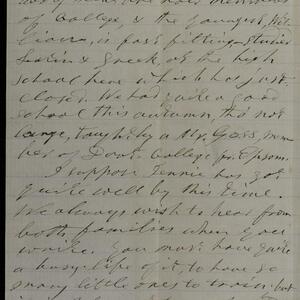 of College, & the youngest, Wil-
liam, is past fitting studies
Latin & Greek, at the high
school here which has just
closed. We had quite a good
school this autumn, tho not
large, taught by a Mr. Goss, mem-
ber of Dart. College fr. Epsom.
I suppose Jennie has got
quite well by this time.
We always wish to hear from
both families when you
write. You must have quite
a busy life of it, to have so
many little ones to train, but